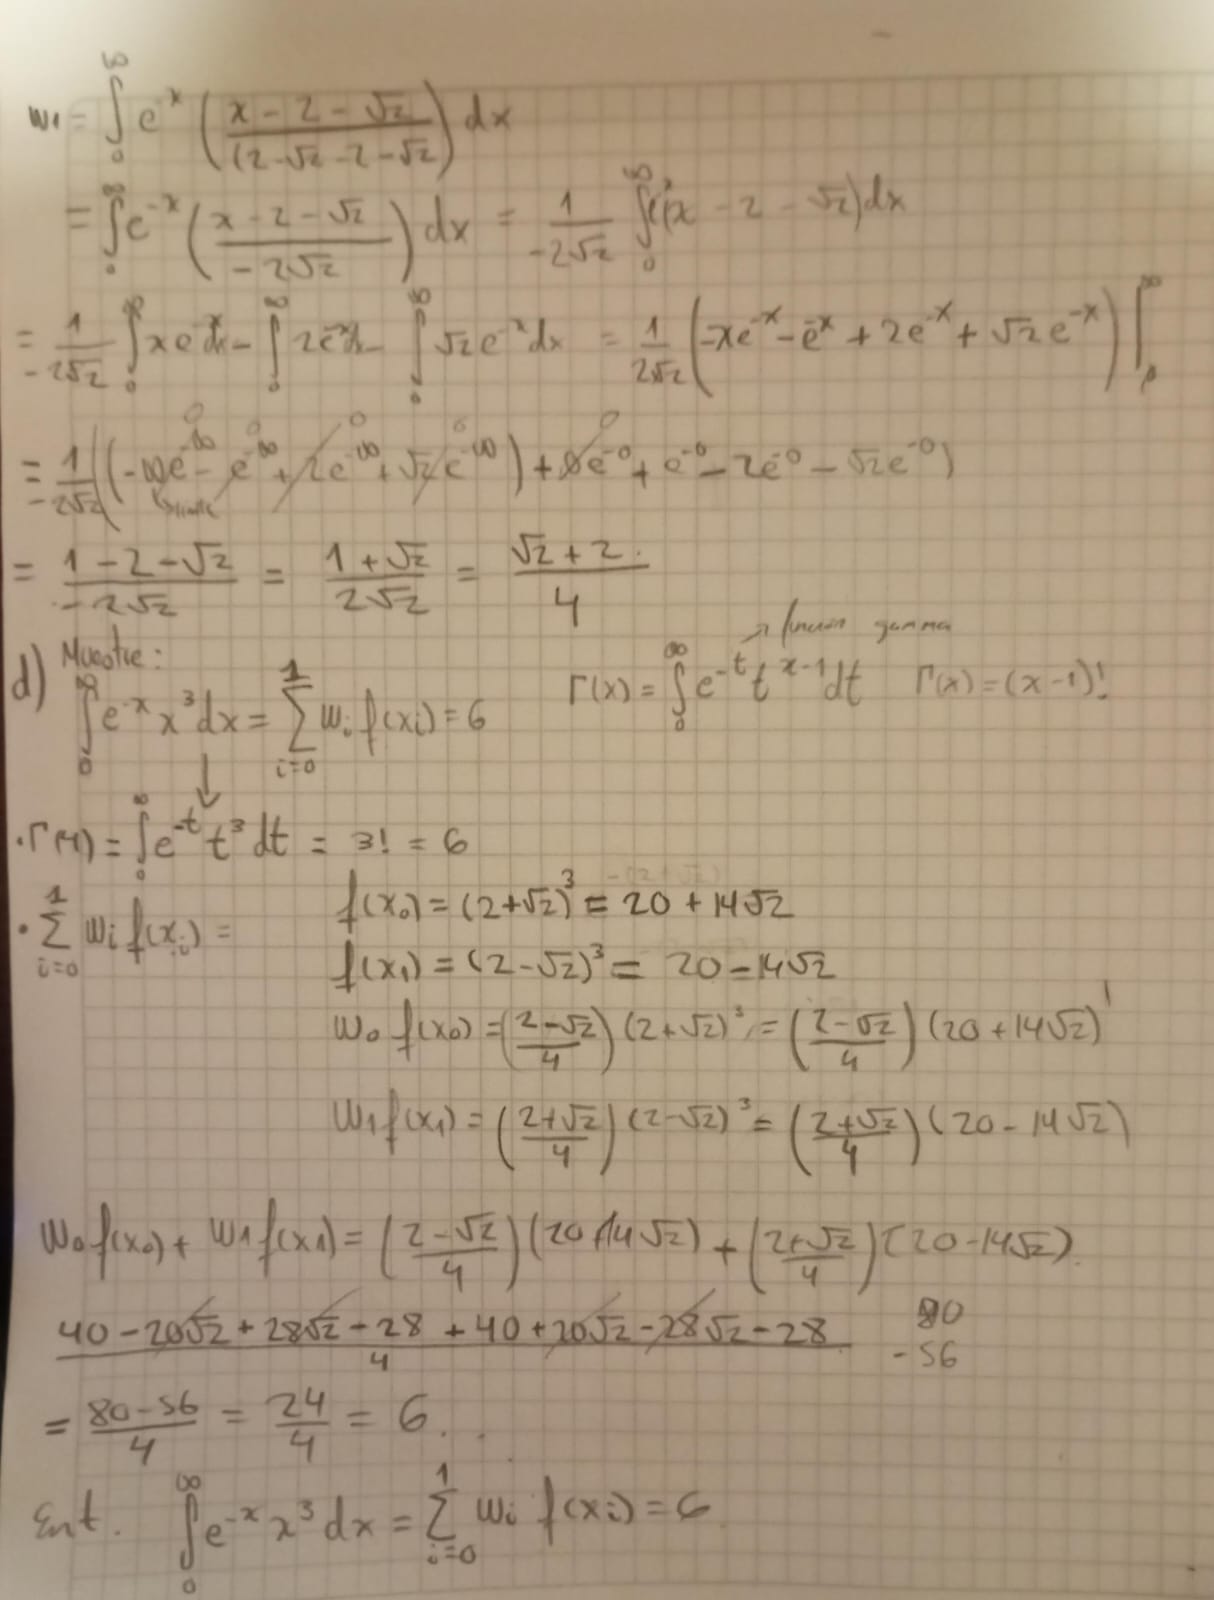 w₁ = ∫₀^∞ e^-x ( (x - 2 - √2) / ((2 - √2 - 2 - √2) ) dx
= ∫₀^∞ e^-x ( (x - 2 - √2) / (-2√2) ) dx = 1/(-2√2) ∫₀^∞ (x - 2 - √2) dx
= 1/(-2√2) ∫₀^∞ x e^-x dx - ∫₀^∞ 2e^-x dx - ∫₀^∞ √2 e^-x dx = 1/(2√2) (-xe^-x - e^-x + 2e^-x + √2 e^-x) |₀^∞
= 1/(-2√2) ((-∞e^-∞ - e^-∞ + 2e^-∞ + √2 e^-∞) + 0e^-0 + e^-0 - 2e^-0 - √2e^-0)
= (1 - 2 - √2)/(-2√2) = (1 + √2)/(2√2) = (√2 + 2)/4
d) Muestre: → función gamma
∫₀^∞ e^-x x³ dx = Σ_{i=0}^{1} wᵢ f(xᵢ) = 6 Γ(x) = ∫₀^∞ e^-t t^{x-1} dt Γ(x) = (x-1)!
· Γ(4) = ∫₀^∞ e^-t t³ dt = 3! = 6
f(x₀) = (2+√2)³ = 20 + 14√2
· Σ_{i=0}^{1} wᵢ f(xᵢ) =
f(x₁) = (2-√2)³ = 20 - 14√2
w₀ f(x₀) = ((2-√2)/4) (2+√2)³ = ((2-√2)/4) (20 + 14√2)
w₁ f(x₁) = ((2+√2)/4) (2-√2)³ = ((2+√2)/4) (20 - 14√2)
w₀ f(x₀) + w₁ f(x₁) = ((2-√2)/4) (20+14√2) + ((2+√2)/4) (20-14√2)
(40 - 20√2 + 28√2 - 28 + 40 + 20√2 - 28√2 - 28)/4 80
- 56
= (80-56)/4 = 24/4 = 6.
Ent. ∫₀^∞ e^-x x³ dx = Σ_{i=0}^{1} wᵢ f(xᵢ) = 6